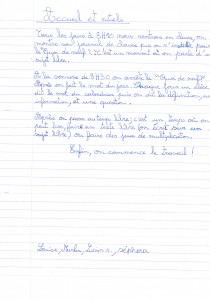 Accueil et rituels
Tous les jours à 8H20 nous rentrons en classe, on
montre son journal de classe puis on s'installe pour
le "Quoi de neuf". C'est un moment où on parle d'un
sujet libre.
À la sonnerie de 8H30 on arrête le "Quoi de neuf".
Après on fait le mot du jour. Chaque jour un élève
dit le mot du calendrier puis on dit la définition, une
information, et une question.
Après on passe au temps libre, c'est un temps où on
peut lire, faire un texte libre (on écrit sur un
sujet libre) ou faire des jeux de multiplication.
Enfin, on commence le travail !
Louise, Merlin, Lucien s., Séphora